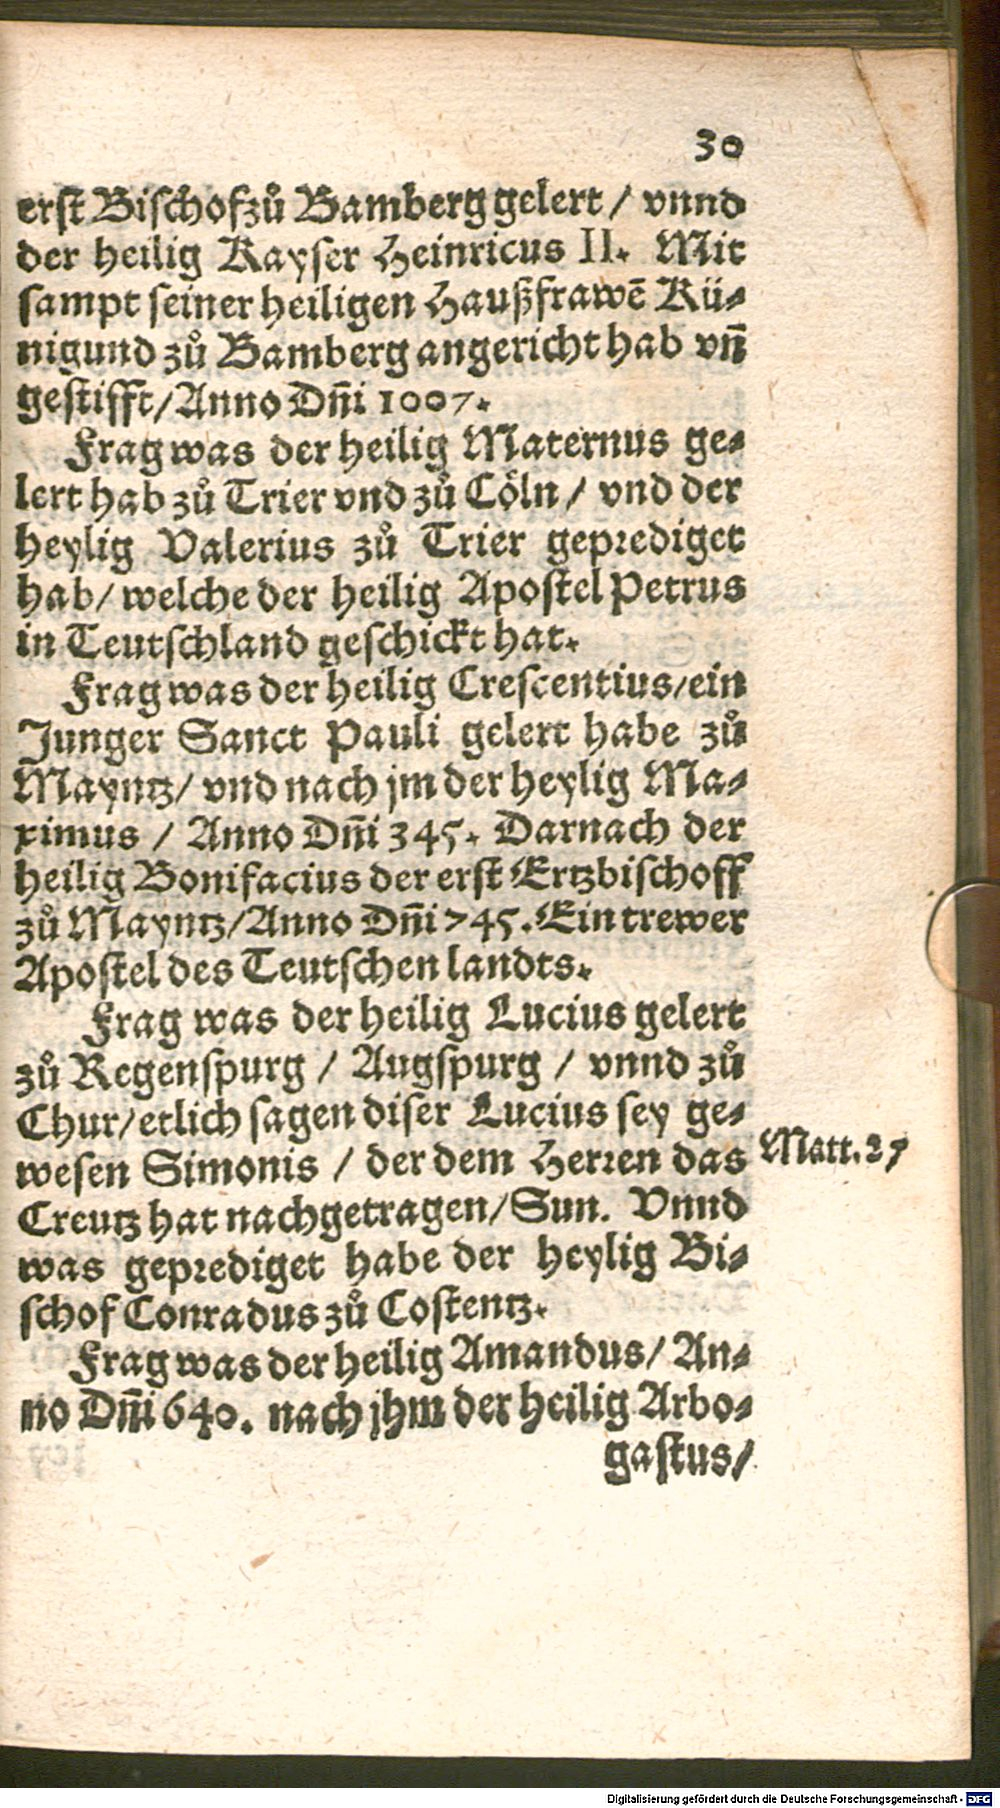 30
erſt Biſchof zů Bamberg gelert / vnnd
der heilig Kayſer Heinricus II. Mit
ſampt ſeiner heiligen Haußfrawē Kü-
nigund zů Bamberg angericht hab vñ
geſtifft / Anno Dñi 1007.
Frag was der heilig Maternus ge-
lert hab zů Trier vnd zů Cöln / vnd der
heylig Valerius zů Trier geprediget
hab / welche der heilig Apoſtel Petrus
in Teutſchland geſchickt hat.
Frag was der heilig Creſcentius / ein
Junger Sanct Pauli gelert habe zů
Mayntz / vnd nach jm der heylig Ma-
ximus / Anno Dñi 345. Darnach der
heilig Bonifacius der erſt Ertzbiſchoff
zů Mayntz / Anno Dñi 745. Ein trewer
Apoſtel des Teutſchen landts.
Frag was der heilig Lucius gelert
zů Regenſpurg / Augſpurg / vnnd zů
Chur / etlich ſagen diſer Lucius ſey ge-
weſen Simonis / der dem Herꝛen das
Matt. 27
Creutz hat nachgetragen / Sun. Vnnd
was geprediget habe der heylig Bi-
ſchof Conradus zů Coſtentz.
Frag was der heilig Amandus / An-
no Dñi 640. nach jhm der heilig Arbo-
gaſtus /
Digitalisierung gefördert durch die Deutsche Forschungsgemeinschaft - DFG